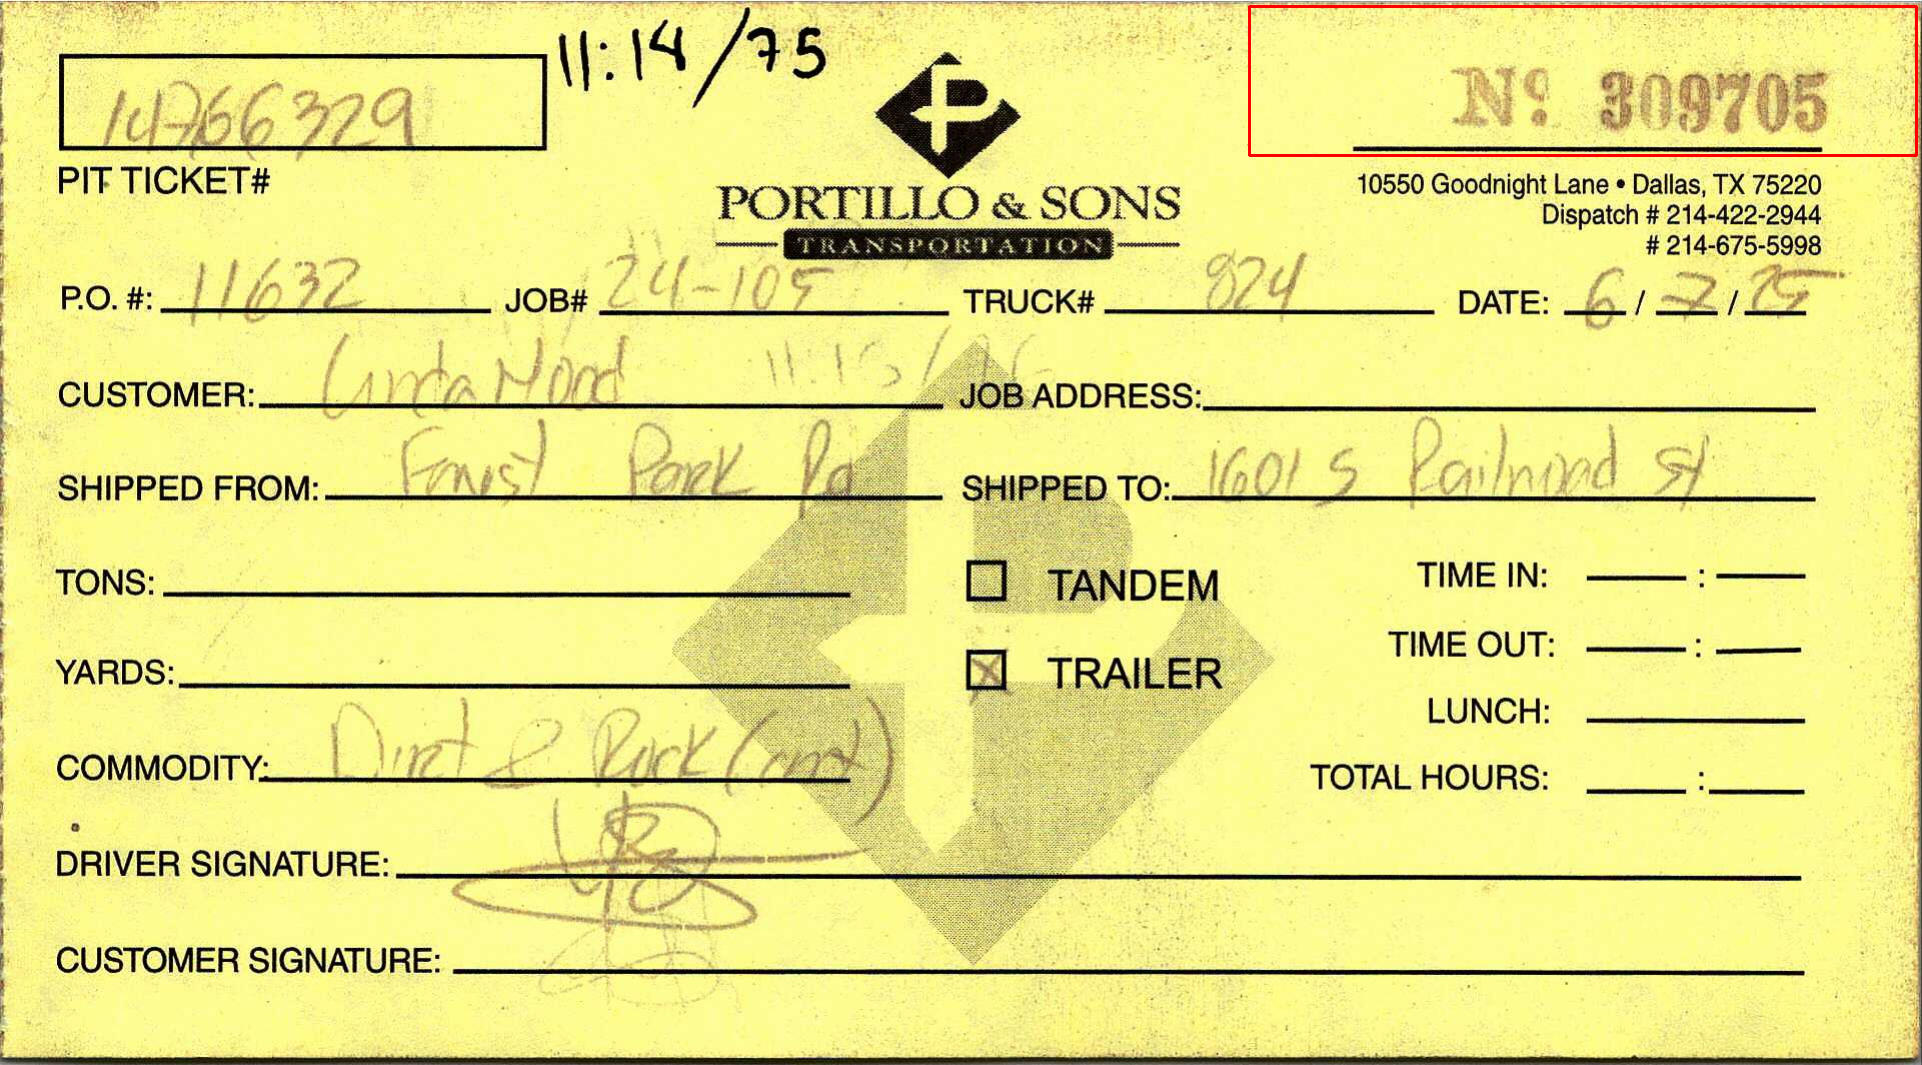 11:14/75
Nº 309705
14766329
PIT TICKET#
PORTILLO & SONS
TRANSPORTATION
10550 Goodnight Lane • Dallas, TX 75220
Dispatch # 214-422-2944
# 214-675-5998
P.O. #: 11632 JOB# 24-105 TRUCK# 824 DATE: 6/7/25
CUSTOMER: Linda Mood 11:15/76 JOB ADDRESS:
SHIPPED FROM: Forest Park Rd SHIPPED TO: 1601 S Railroad St
TONS: TANDEM TIME IN: :
YARDS: X TRAILER TIME OUT: :
LUNCH:
COMMODITY: Dirt & Rock (mix) TOTAL HOURS: :
DRIVER SIGNATURE:
CUSTOMER SIGNATURE: